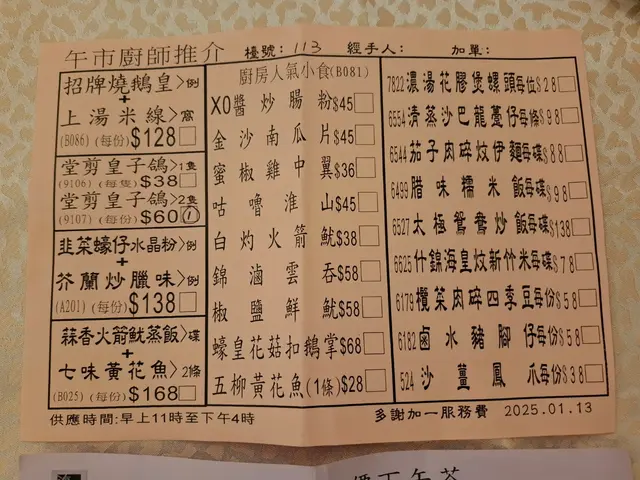 午市廚師推介 檯號: 113 經手人: 加單:
招牌燒鵝皇>例
+
上湯米線>窩
(B086) (每份)$128
堂剪皇子鴿>1隻
(9106) (每隻)$38
堂剪皇子鴿>2隻
(9107) (每份)$60 1
韭菜蠔仔水晶粉>例
+
芥蘭炒臘味>例
(A201) (每份)$138
蒜香火箭魷蒸飯>碟
+
七味黃花魚>2條
(B025) (每份)$168
廚房人氣小食(B081)
XO醬炒腸粉$45
金沙南瓜片$45
蜜椒雞中翼$36
咕嚕淮山$45
白灼火箭魷$38
錦滷雲吞$58
椒鹽鮮魷$58
蠔皇花菇扣鵝掌$68
五柳黃花魚(1條)$28
7822濃湯花膠煲螺頭每位$28
6554清蒸沙巴龍躉仔每條$98
6544茄子肉碎炆伊麵每碟$88
6499腊味糯米飯每碟$98
6527太極鴛鴦炒飯每碟$138
6625什錦海皇炆新竹米每碟$78
6179欖菜肉碎四季豆每份$58
6182鹵水豬腳仔每份$58
524沙薑鳳爪每份$38
供應時間:早上11時至下午4時
多謝加一服務費 2025.01.13